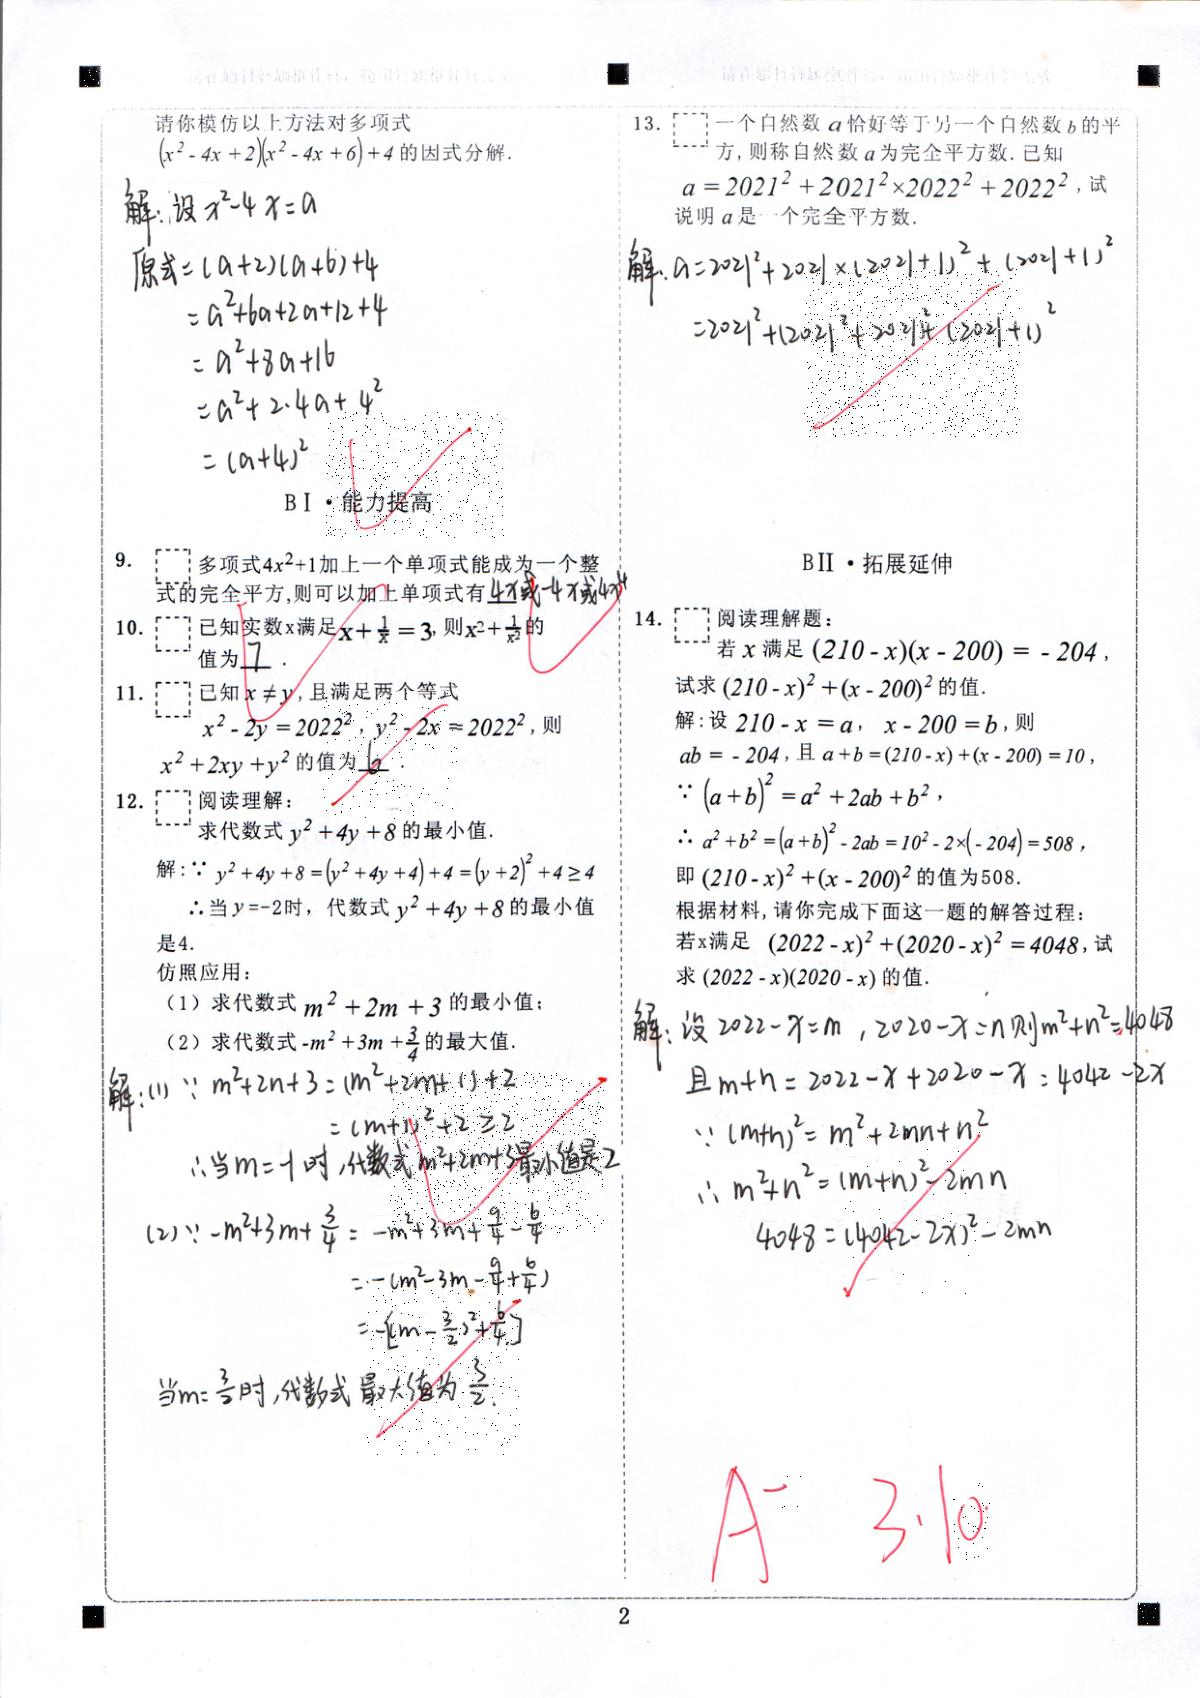 请你模仿以上方法对多项式
(x² - 4x + 2)(x² - 4x + 6) + 4 的因式分解.
解:设 x²-4x=a
原式=(a+2)(a+6)+4
=a²+6a+2a+12+4
=a²+8a+16
=a²+2·4a+4²
=(a+4)²
BⅠ·能力提高
9. 多项式4x²+1加上一个单项式能成为一个整
式的完全平方,则可以加上单项式有 4x或-4x或4x⁴
10. 已知实数x满足x+1/x=3,则x²+1/x²的
值为 7 .
11. 已知 x ≠ y,且满足两个等式
x² - 2y = 2022², y² - 2x = 2022²,则
x² + 2xy + y² 的值为 6 .
12. 阅读理解:
求代数式 y² + 4y + 8 的最小值.
解:∵ y² + 4y + 8 = (y² + 4y + 4) + 4 = (y + 2)² + 4 ≥ 4
∴当 y=-2时, 代数式 y² + 4y + 8 的最小值
是4.
仿照应用:
(1) 求代数式 m² + 2m + 3 的最小值;
(2) 求代数式 -m² + 3m + 3/4 的最大值.
解:(1) ∵ m²+2m+3=(m²+2m+1)+2
=(m+1)²+2≥2
∴当m=-1时,代数式m²+2m+3最小值是2
(2)∵ -m²+3m+3/4 = -m²+3m+9/4-6/4
=-(m²-3m-9/4+6/4)
=-[(m-3/2)²+6/4]
当m=3/2时,代数式最大值为3/2.
13. 一个自然数 a 恰好等于另一个自然数 b 的平
方,则称自然数 a 为完全平方数. 已知
a = 2021² + 2021² × 2022² + 2022² ,试
说明 a 是一个完全平方数.
解:a=2021²+2021×(2021+1)²+(2021+1)²
=2021²+(2021²+2021)²+(2021+1)²
BⅡ·拓展延伸
14. 阅读理解题:
若 x 满足 (210 - x)(x - 200) = - 204 ,
试求 (210 - x)² + (x - 200)² 的值.
解:设 210 - x = a, x - 200 = b ,则
ab = - 204 ,且 a + b = (210 - x) + (x - 200) = 10 ,
∵ (a + b)² = a² + 2ab + b² ,
∴ a² + b² = (a + b)² - 2ab = 10² - 2×(- 204) = 508 ,
即 (210 - x)² + (x - 200)² 的值为508.
根据材料,请你完成下面这一题的解答过程:
若x满足 (2022 - x)² + (2020 - x)² = 4048 ,试
求 (2022 - x)(2020 - x) 的值.
解:设2022-x=m,2020-x=n则m²+n²=4048
且m+n=2022-x+2020-x=4042-2x
∵(m+n)²=m²+2mn+n²
∴m²+n²=(m+n)²-2mn
4048=(4042-2x)²-2mn
A⁻ 3.10
2